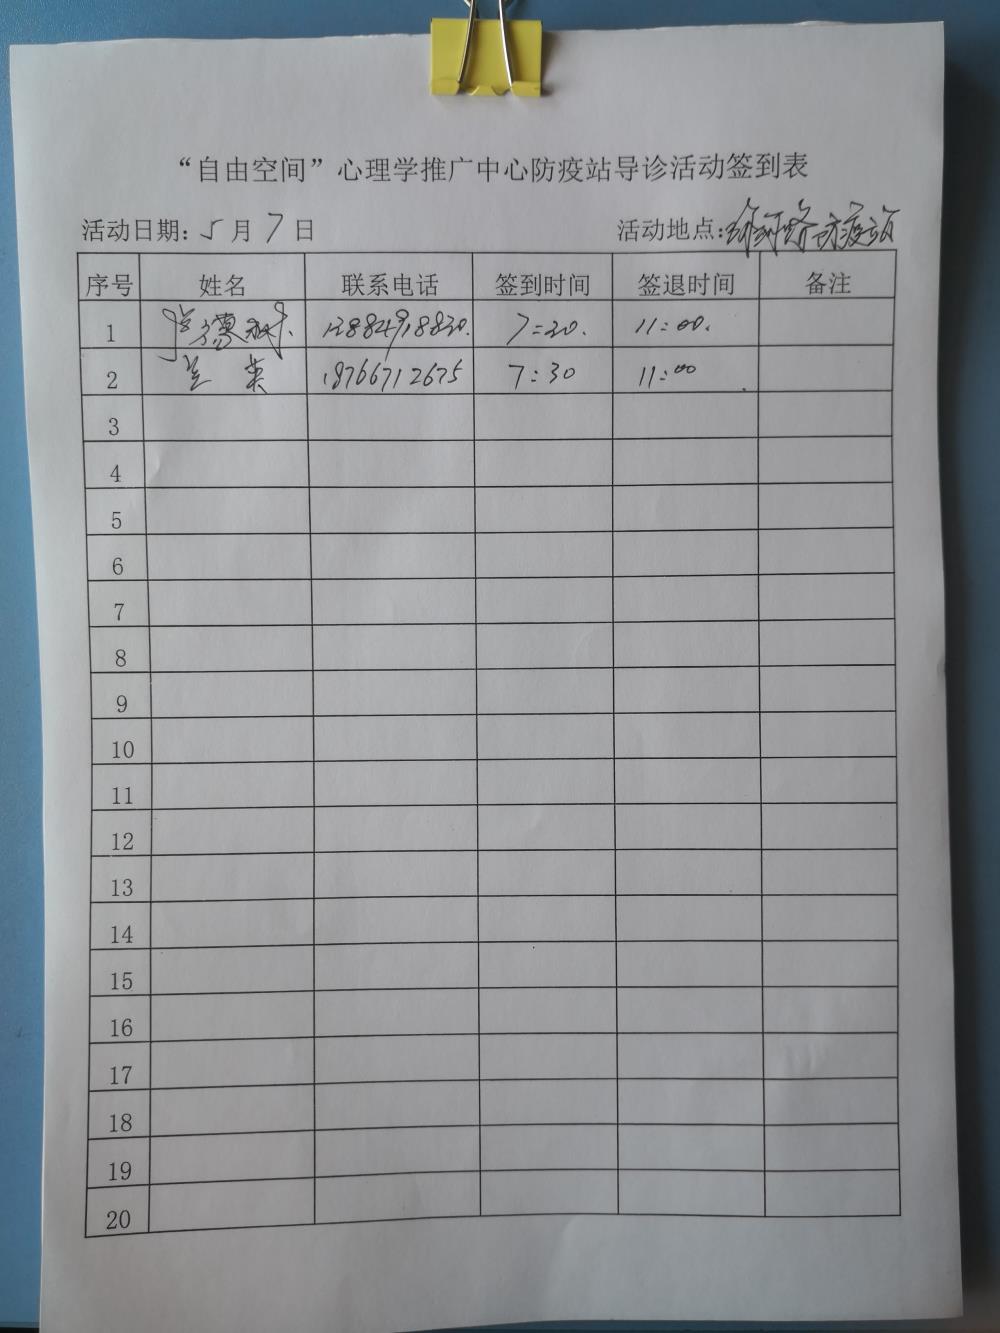 “自由空间”心理学推广中心防疫站导诊活动签到表
活动日期: 5月7日 活动地点: 防疫站
序号 姓名 联系电话 签到时间 签退时间 备注
1 13884918830. 7:30. 11:00.
2 兰英 18766712675 7:30 11:00
3
4
5
6
7
8
9
10
11
12
13
14
15
16
17
18
19
20